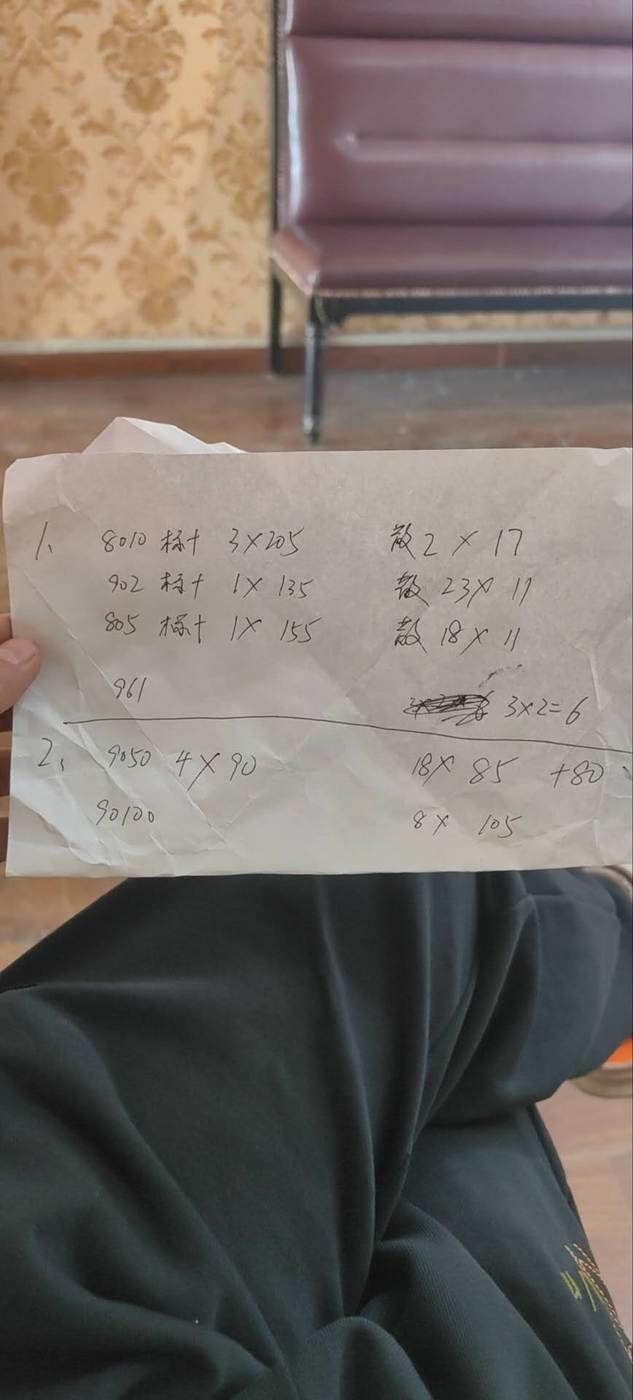 1、 8010 标十 3×205 散2×17
902 标十 1×135 散 23×11
805 标十 1×155 散18×11
961 3×2=6
2、 9050 4×90 18×85 +80
90100 8×105